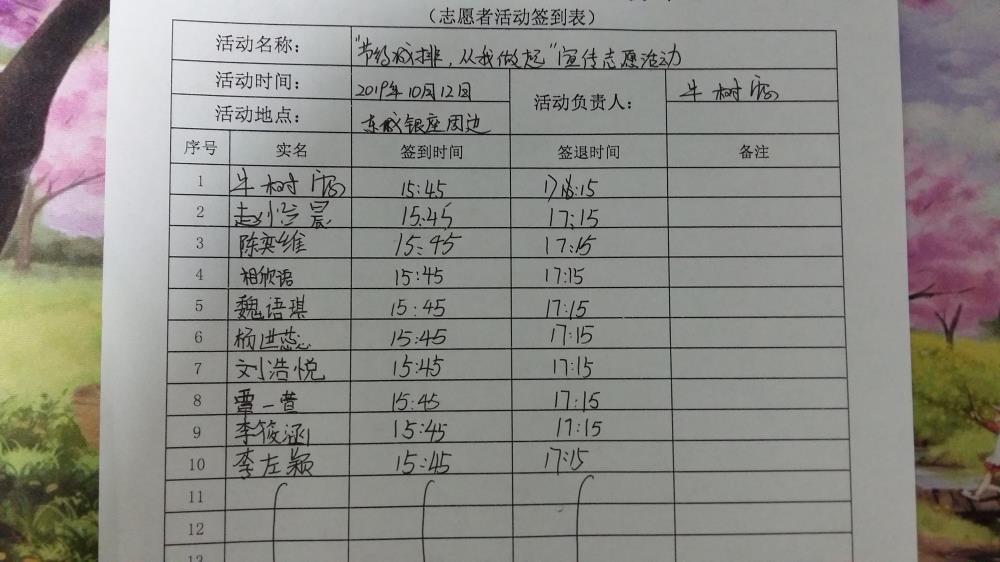 （志愿者活动签到表）
活动名称： “节约减排，从我做起”宣传志愿活动
活动时间： 2019年10月12日 活动负责人： 牛树
活动地点： 东城银座周边
序号 实名 签到时间 签退时间 备注
1 牛树 15:45 17:15
2 赵 晨 15:45 17:15
3 陈奕维 15:45 17:15
4 相欣语 15:45 17:15
5 魏语琪 15:45 17:15
6 杨进蕊 15:45 17:15
7 刘浩悦 15:45 17:15
8 覃一萱 15:45 17:15
9 李筱涵 15:45 17:15
10 李左颖 15:45 17:15
11
12
13